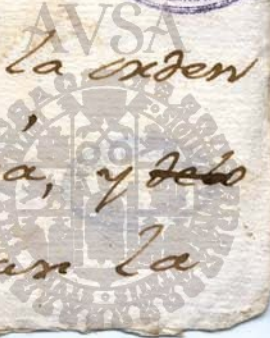 AVSA
la orden
a, y
an la